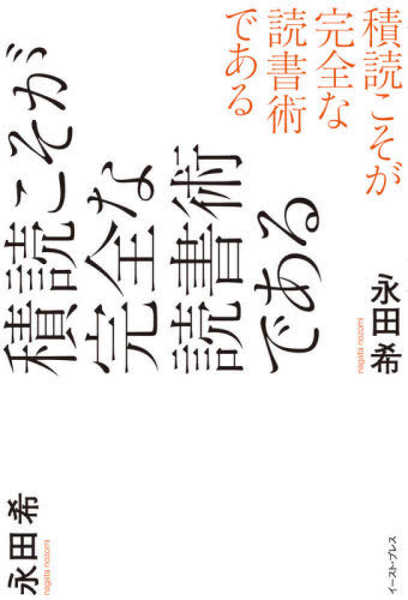 積読こそが
完全な
読書術
である
永田希
nagata nozomi
積読こそが
完全な
読書術
である
永田希
nagata nozomi
イースト・プレス